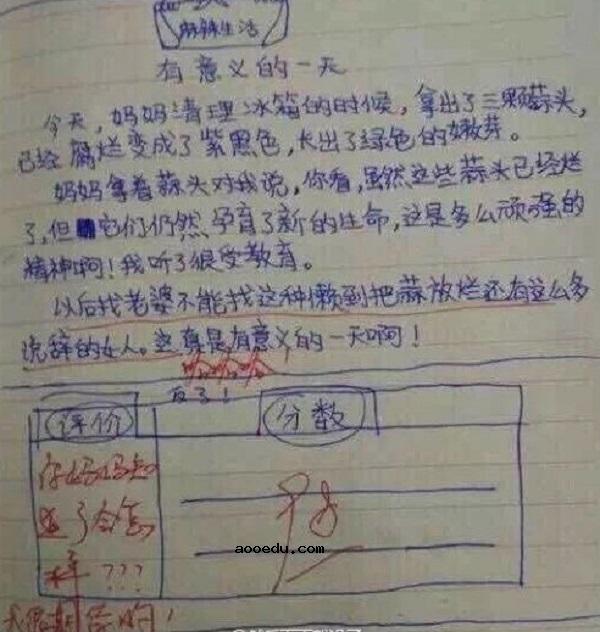 麻辣生活
有意义的一天
今天，妈妈清理冰箱的时候，拿出了三颗蒜头，
已经腐烂变成了紫黑色，长出了绿色的嫩芽。
妈妈拿着蒜头对我说，你看，虽然这些蒜头已经烂
了，但它们仍然孕育了新的生命，这是多么顽强的
精神啊！我听了很受教育。
以后找老婆不能找这种懒到把蒜放烂还有这么多
说辞的女人。这真是有意义的一天啊！
哈哈哈
反了！
评价
分数
你妈妈知
道了会怎
样???
aooedu.com